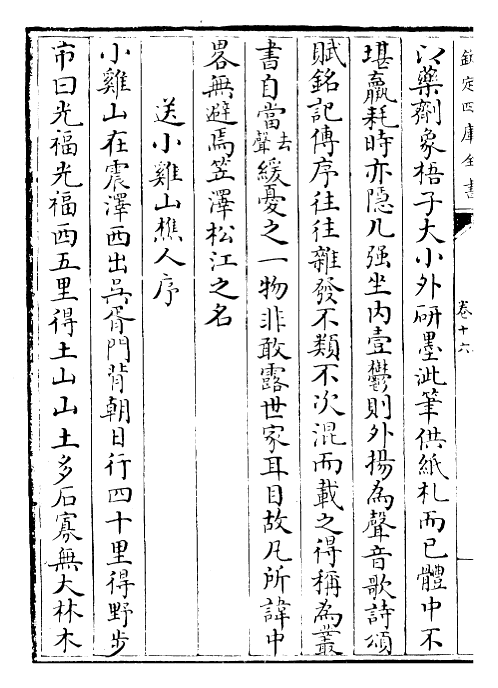 欽定四庫全書
卷十六
以藥劑象梧子大小外研墨泚筆供紙札而已體中不
堪羸耗時亦隱几强坐内壹鬱則外揚為聲音歌詩頌
賦銘記傳序往往雜發不類不次混而載之得稱為叢
書自當去聲緩憂之一物非敢露世家耳目故凡所諱中
畧無避焉笠澤松江之名
送小雞山樵人序
小雞山在震澤西出吳胥門背朝日行四十里得野步
市曰光福光福西五里得土山山土多石寡無大林木